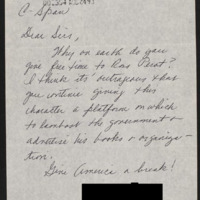 C-Span
Dear Sirs,
Why on earth do you
give free time to Ross Perot?
I think its' outrageous that
you continue giving this
character a platform on which
to lambast the government &
advertise his books & organiza-
tion.
Give America a break!